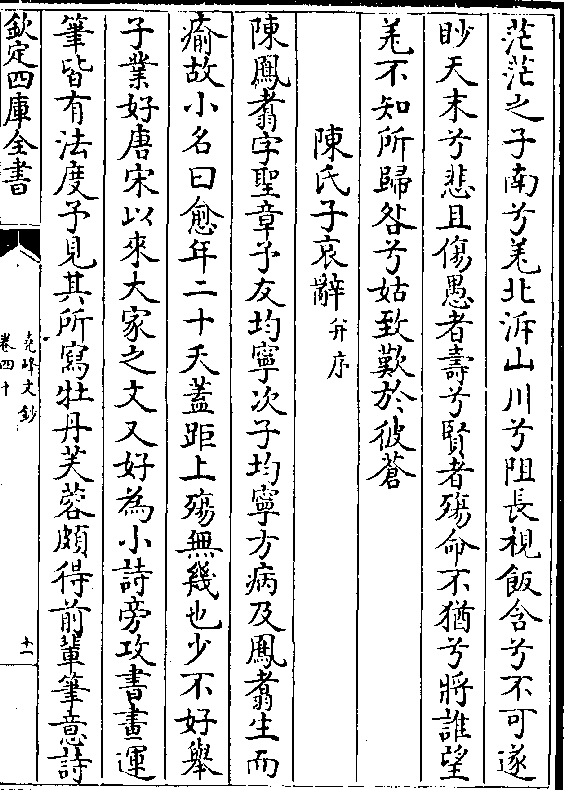 茫茫之子南兮羌北泝山川兮阻長視飯含兮不可遂
眇天末兮悲且傷愚者壽兮賢者殤命不猶兮將誰望
羌不知所歸咎兮姑致歎於彼蒼
陳氏子哀辭并序
陳鳳翥字聖章予友均寧次子均寧方病及鳳翥生而
瘉故小名曰愈年二十夭蓋距上殤無幾也少不好舉
子業好唐宋以來大家之文又好為小詩旁攻書畫運
筆皆有法度予見其所寫牡丹芙蓉頗得前輩筆意詩
欽定四庫全書
堯峰文鈔
卷四十
十一